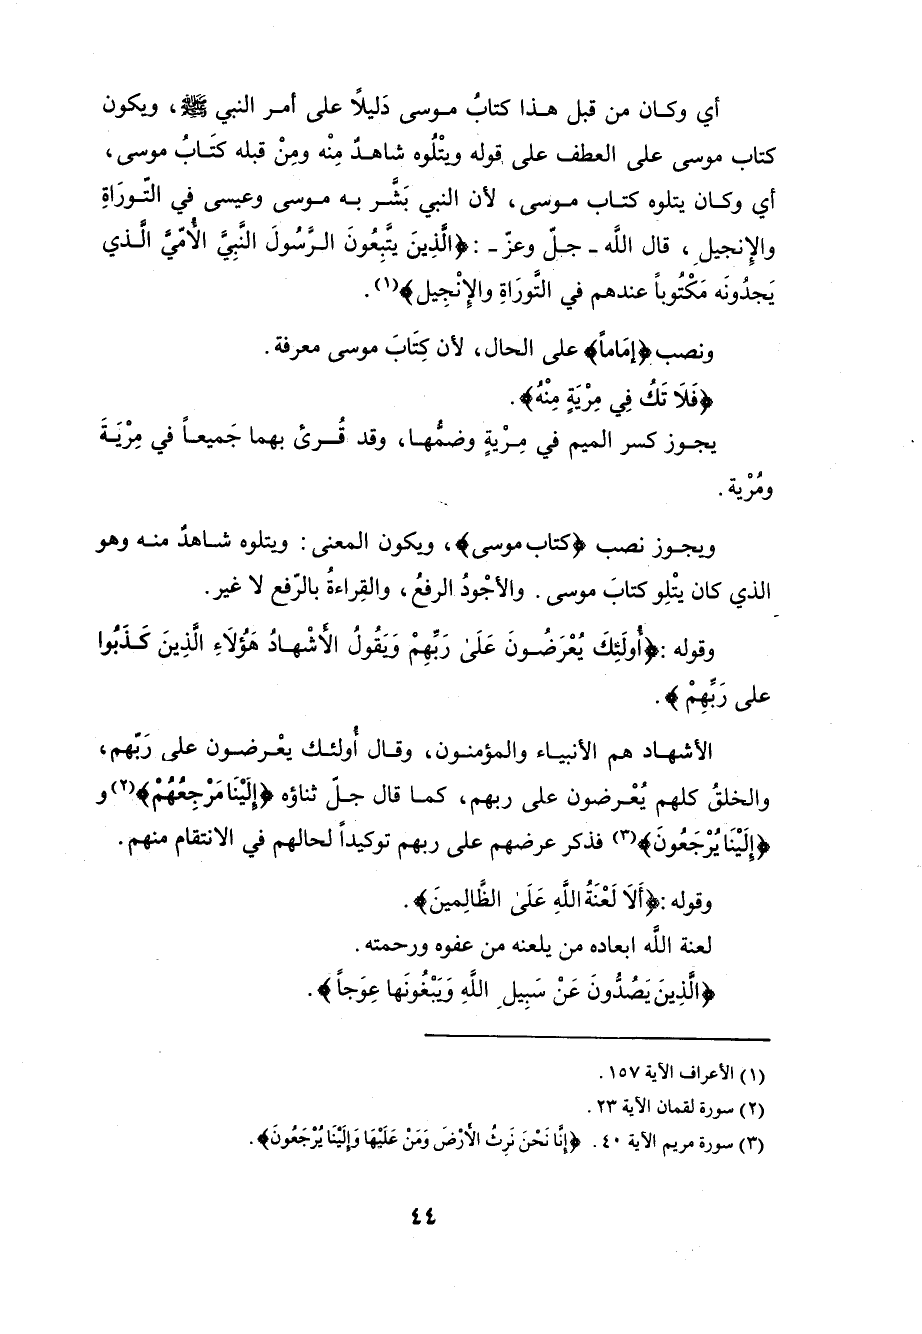 أي وكان من قبل هذا كتابُ موسى دَليلاً على أمر النبي ﷺ، ويكون
كتاب موسى على العطف على قوله ويتْلُوه شاهدٌ مِنْه ومِنْ قبله كتَابُ موسى،
أي وكان يتلوه كتاب موسى، لأن النبي بَشَّر به موسى وعيسى في التّورَاةِ
والإنجيل، قال اللَّه ـ جلّ وعزّ ـ : ﴿الَّذِينَ يتَّبِعُونَ الرَّسُولَ النَّبِيَّ الأُمّيَّ الَّذي
يَجدُونَه مَكْتُوباً عندهم في التَّورَاةِ والإنْجِيل﴾(١).
ونصب ﴿إمَاماً﴾ على الحال، لأن كِتَابَ موسى معرفة.
﴿فَلَا تَكُ فِي مِرْيَةٍ مِنْهُ﴾.
يجوز كسر الميم في مِرْيةٍ وضمُّها، وقد قُرئ بهما جَميعاً في مِرْيَةَ
ومُرْية.
ويجوز نصب ﴿كتاب موسى﴾، ويكون المعنى : ويتلوه شاهدٌ منه وهو
الذي كان يتْلِو كتابَ موسى. والأجْودُ الرفعُ، والقِراءةُ بالرّفع لا غير.
وقوله : ﴿أُولَئِكَ يُعْرَضُونَ عَلَىٰ رَبِّهِمْ وَيَقُولُ الأَشْهادُ هَؤُلَاءِ الَّذِينَ كَذَبُوا
على رَبِّهِمْ﴾.
الأشهاد هم الأنبياء والمؤمنون، وقال أُولئك يعْرضون على رَبّهم،
والخلقُ كلهم يُعْرضون على ربهم، كما قال جلّ ثناؤه ﴿إِلَيْنَا مَرْجِعُهُمْ﴾(٢) و
﴿إِلَيْنَا يُرْجَعُونَ﴾(٣) فذكر عرضهم على ربهم توكيداً لحالهم في الانتقام منهم.
وقوله : ﴿أَلَا لَعْنَةُ اللَّهِ عَلَىٰ الظَّالِمينَ﴾.
لعنة اللَّه ابعاده من يلعنه من عفوه ورحمته.
﴿الَّذِينَ يَصُدُّونَ عَنْ سَبِيلِ اللَّهِ وَيَبْغُونَها عِوَجاً﴾.
(١) الأعراف الآية ١٥٧.
(٢) سورة لقمان الآية ٢٣.
(٣) سورة مريم الآية ٤٠. ﴿إِنَّا نَحْنُ نَرِثُ الأَرْضَ وَمَنْ عَلَيْهَا وَإِلَيْنَا يُرْجَعُونَ﴾.
٤٤